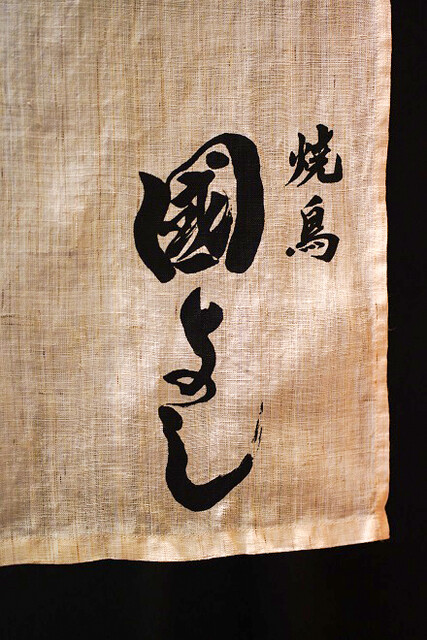 焼鳥
國よし